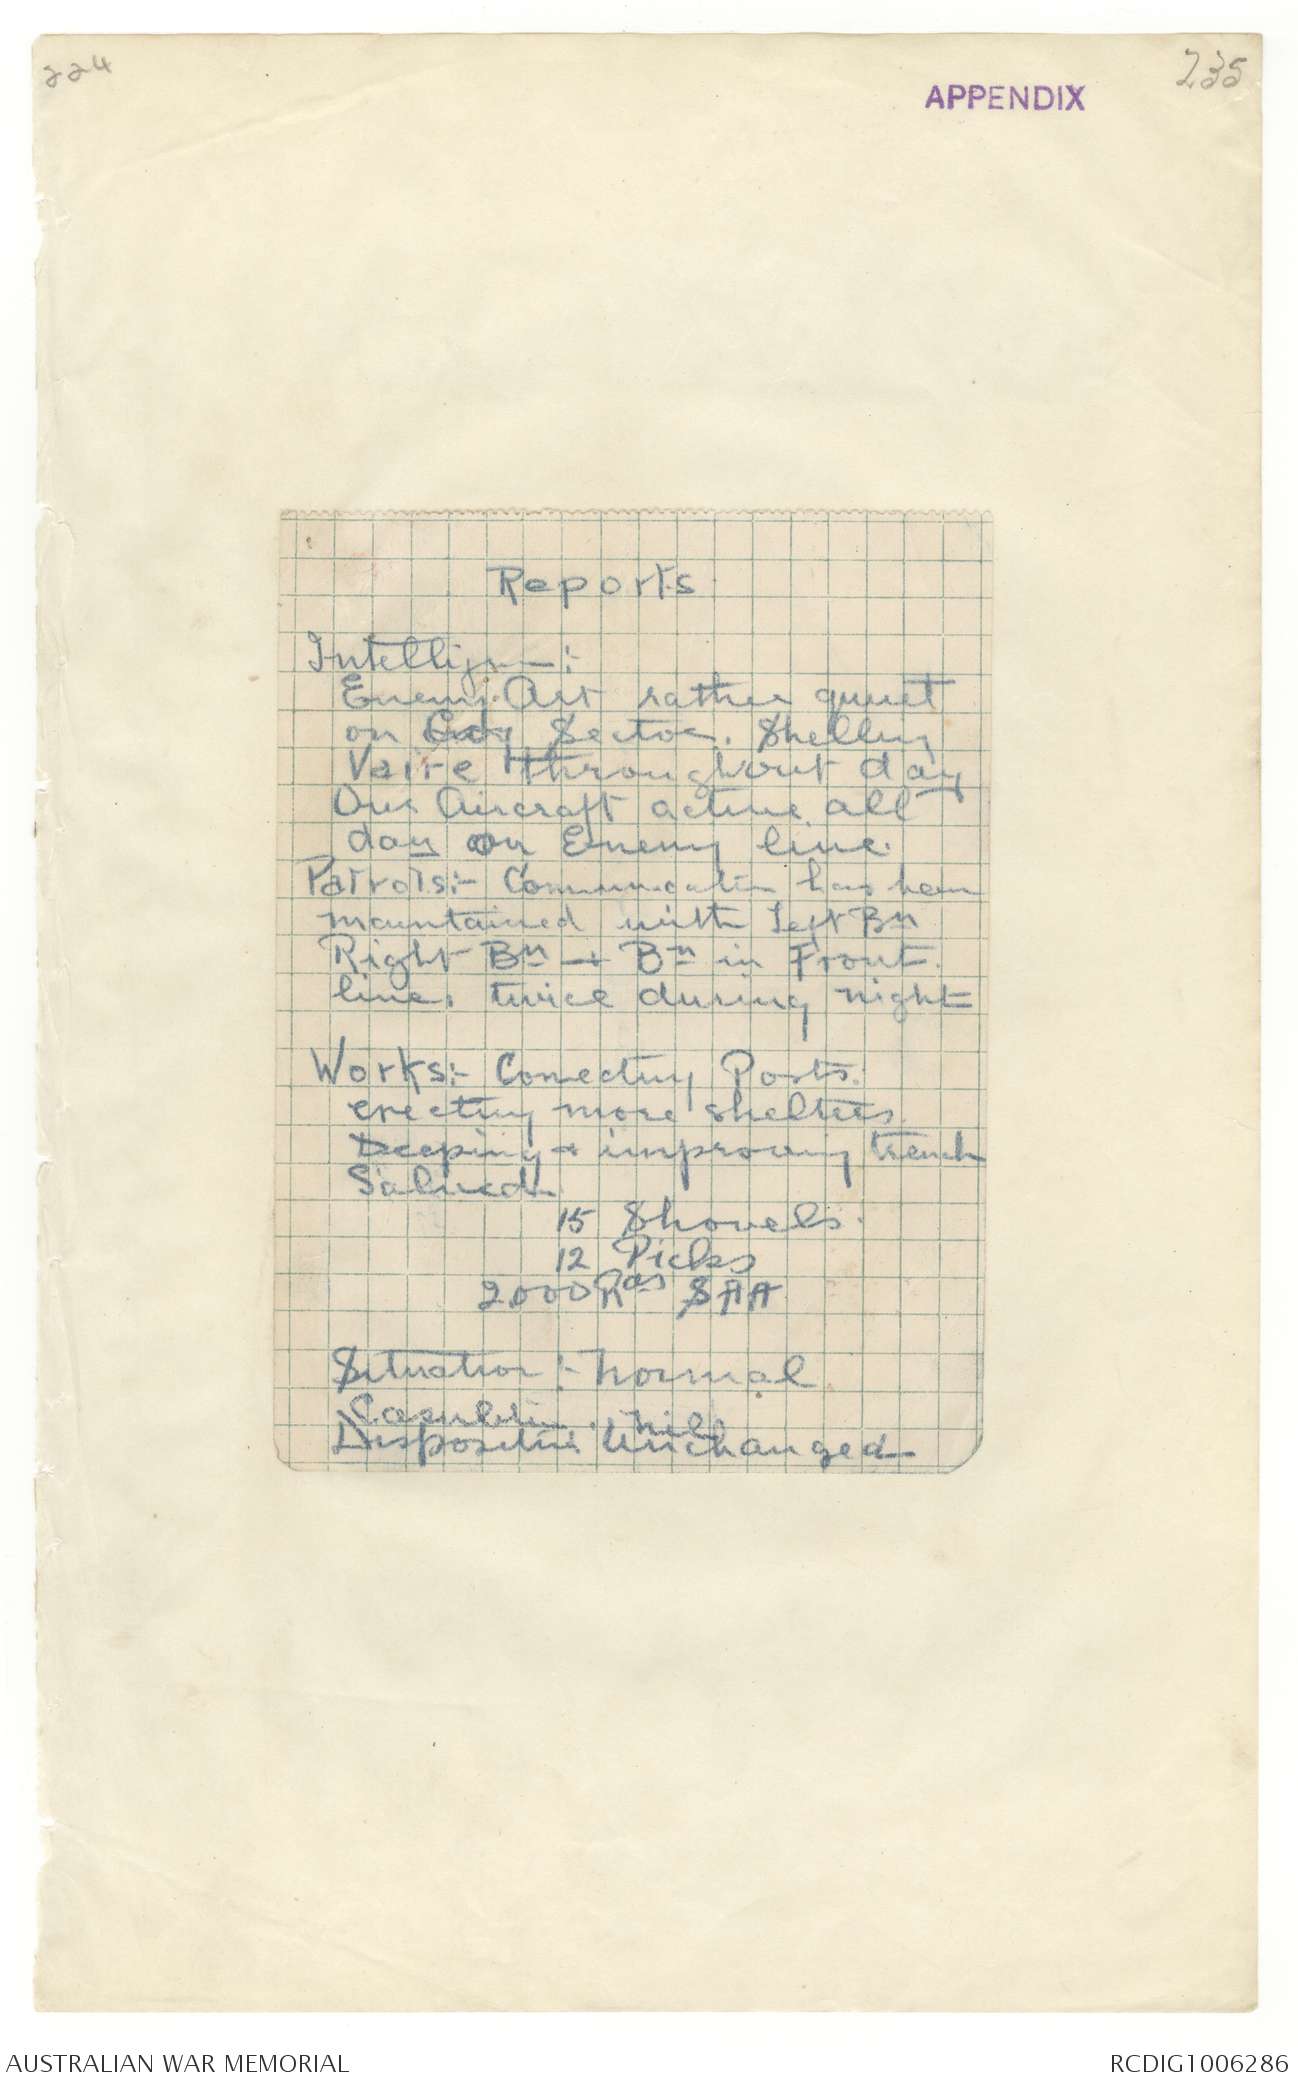 224
235
APPENDIX
Reports
Intelligence:-
Enemy Art rather quiet
on Coy Sector. Shelling
Vaire throughout day
Our Aircraft active all
day on Enemy line.
Patrols:- Communication has been
maintained with Left Bn
Right Bn + Bn in Front
line, twice during night
Works:- Conecting Posts.
erecting more shelters
Deeping & improving trench
Salved.
15 Shovels.
12 Picks
2,000 Rds SAA
Situation:- Normal
Casualties. nil
Disposition Unchanged
AUSTRALIAN WAR MEMORIAL
RCDIG1006286